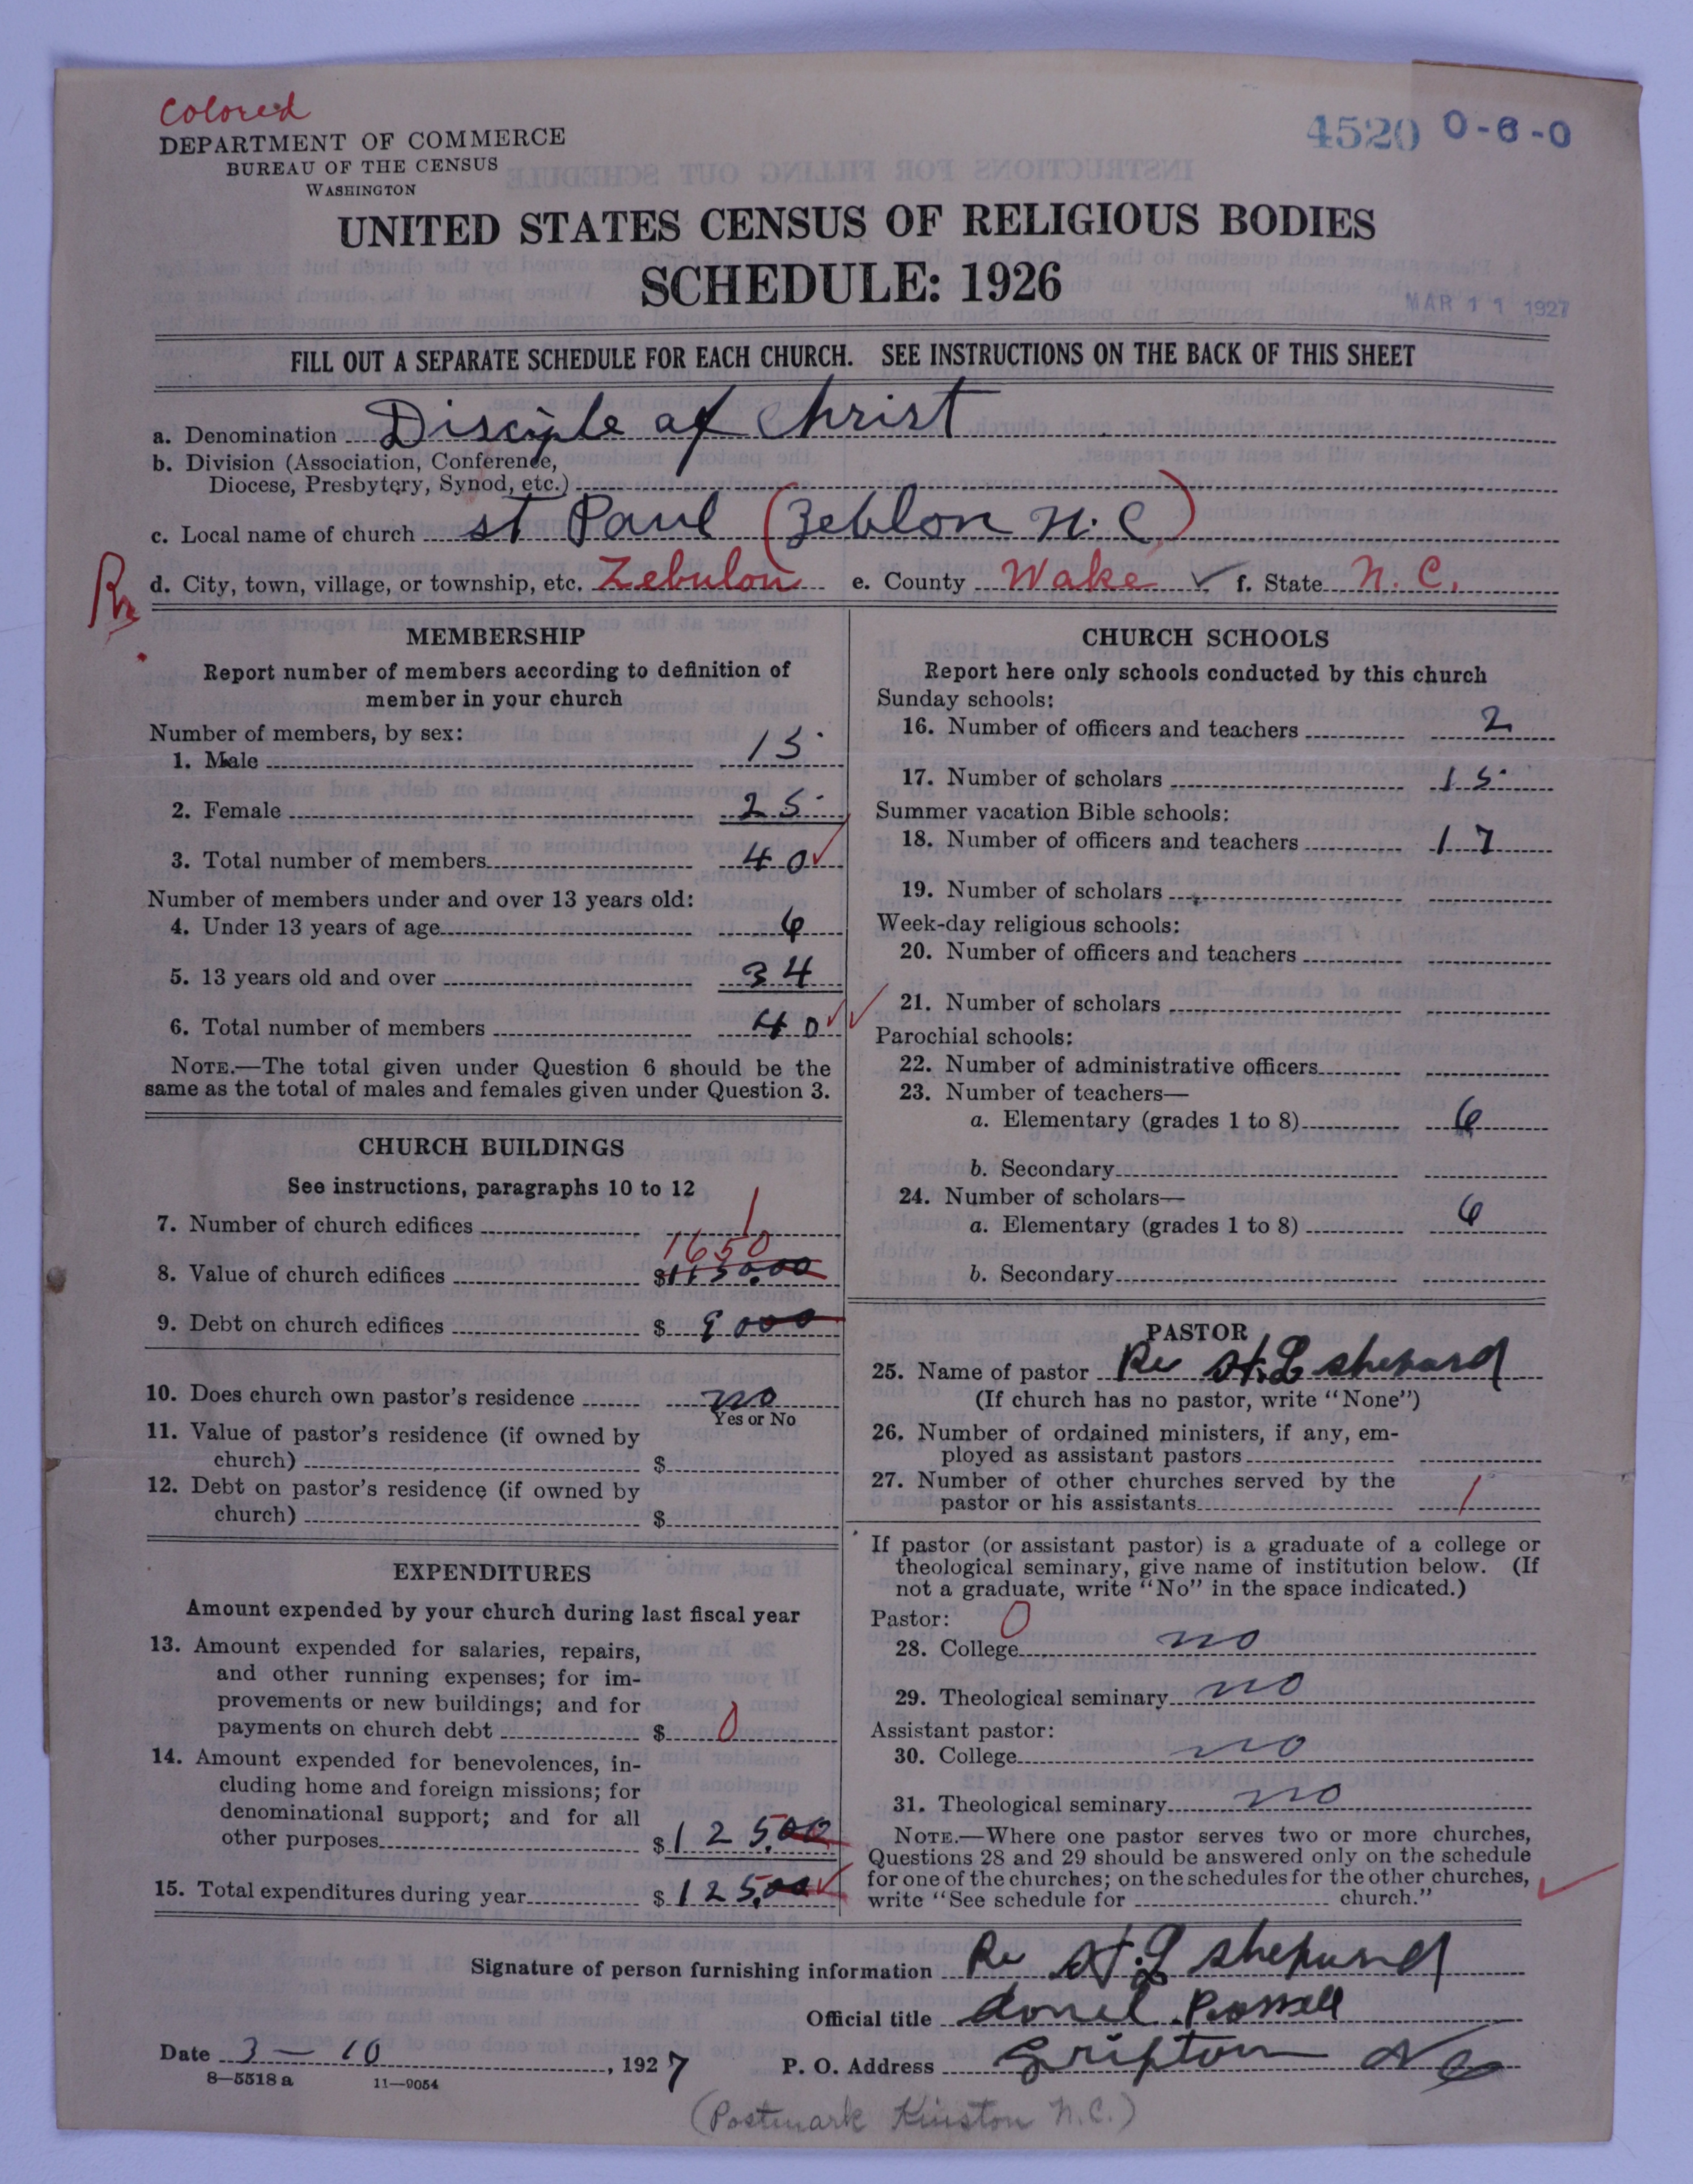 Colored
DEPARTMENT OF COMMERCE
BUREAU OF THE CENSUS
WASHINGTON
4520 0-6-0
UNITED STATES CENSUS OF RELIGIOUS BODIES
SCHEDULE: 1926
MAR 11 1927
FILL OUT A SEPARATE SCHEDULE FOR EACH CHURCH. SEE INSTRUCTIONS ON THE BACK OF THIS SHEET
a. Denomination Disciple of Christ
b. Division (Association, Conference,
Diocese, Presbytery, Synod, etc.)
c. Local name of church st Paul (Zeblon N.C)
d. City, town, village, or township, etc. Zebulon e. County Wake ✓ f. State N. C.
MEMBERSHIP
Report number of members according to definition of
member in your church
Number of members, by sex:
1. Male 15
2. Female 25
3. Total number of members 40 ✓
Number of members under and over 13 years old:
4. Under 13 years of age 6
5. 13 years old and over 34
6. Total number of members 40 ✓
NOTE.—The total given under Question 6 should be the
same as the total of males and females given under Question 3.
CHURCH BUILDINGS
See instructions, paragraphs 10 to 12
7. Number of church edifices 1
1650
8. Value of church edifices $
9. Debt on church edifices $
10. Does church own pastor's residence no
Yes or No
11. Value of pastor's residence (if owned by
church) $
12. Debt on pastor's residence (if owned by
church) $
EXPENDITURES
Amount expended by your church during last fiscal year
13. Amount expended for salaries, repairs,
and other running expenses; for im-
provements or new buildings; and for
payments on church debt $ 0
14. Amount expended for benevolences, in-
cluding home and foreign missions; for
denominational support; and for all
other purposes $125.00
15. Total expenditures during year $125.00 ✓
CHURCH SCHOOLS
Report here only schools conducted by this church
Sunday schools:
16. Number of officers and teachers 2
17. Number of scholars 15
Summer vacation Bible schools:
18. Number of officers and teachers 17
19. Number of scholars
Week-day religious schools:
20. Number of officers and teachers
✓ 21. Number of scholars
Parochial schools:
22. Number of administrative officers
23. Number of teachers—
a. Elementary (grades 1 to 8) 6
b. Secondary
24. Number of scholars—
a. Elementary (grades 1 to 8) 6
b. Secondary
PASTOR
25. Name of pastor Re H.L shepard
(If church has no pastor, write "None")
26. Number of ordained ministers, if any, em-
ployed as assistant pastors
27. Number of other churches served by the
pastor or his assistants 1
If pastor (or assistant pastor) is a graduate of a college or
theological seminary, give name of institution below. (If
not a graduate, write "No" in the space indicated.)
Pastor: 0
28. College no
29. Theological seminary no
Assistant pastor:
30. College no
31. Theological seminary no
NOTE.—Where one pastor serves two or more churches,
Questions 28 and 29 should be answered only on the schedule
for one of the churches; on the schedules for the other churches,
write "See schedule for church." ✓
Signature of person furnishing information Re H.L shepard
Official title
Date 3 — 10, 1927 P. O. Address NC
8—5518 a 11—9054
(Postmark Kinston N.C.)